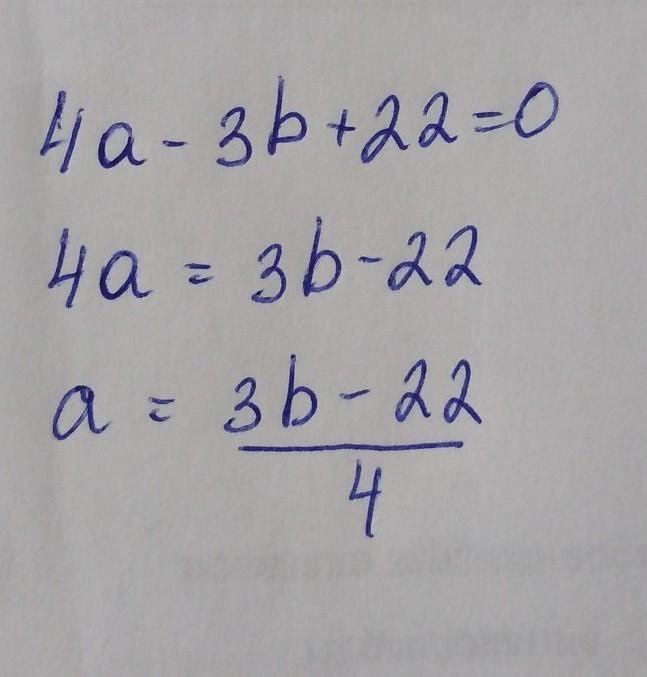 4a - 3b + 22 = 0
4a = 3b - 22
a = 3b - 22
4